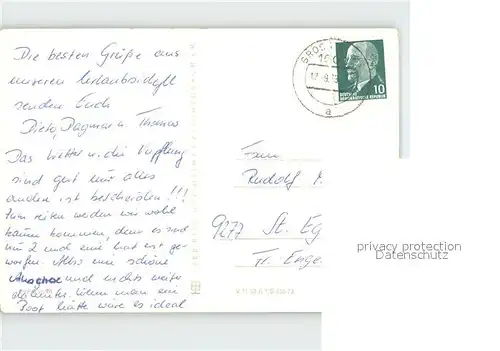 Die besten Grüße aus
unserem Urlaubsidyll
senden Euch
Dieter, Dagmar u. Thomas
Das Wetter u. die Verpflegung
sind gut nur alles
andere ist bescheiden!!!
Zum reiten werden wir wohl
kaum kommen, denn es sind
nur 2 und eine hat erst ge-
worfen. Also eine schöne
und nichts weiter
dahinter. Wenn man ein
Boot hätte wäre es ideal
GROSS
10
DEUTSCHE
DEMOKRATISCHE REPUBLIK
a
Rudolf
9277 St. Eg
Fr. Enge
privacy protection
Datenschutz